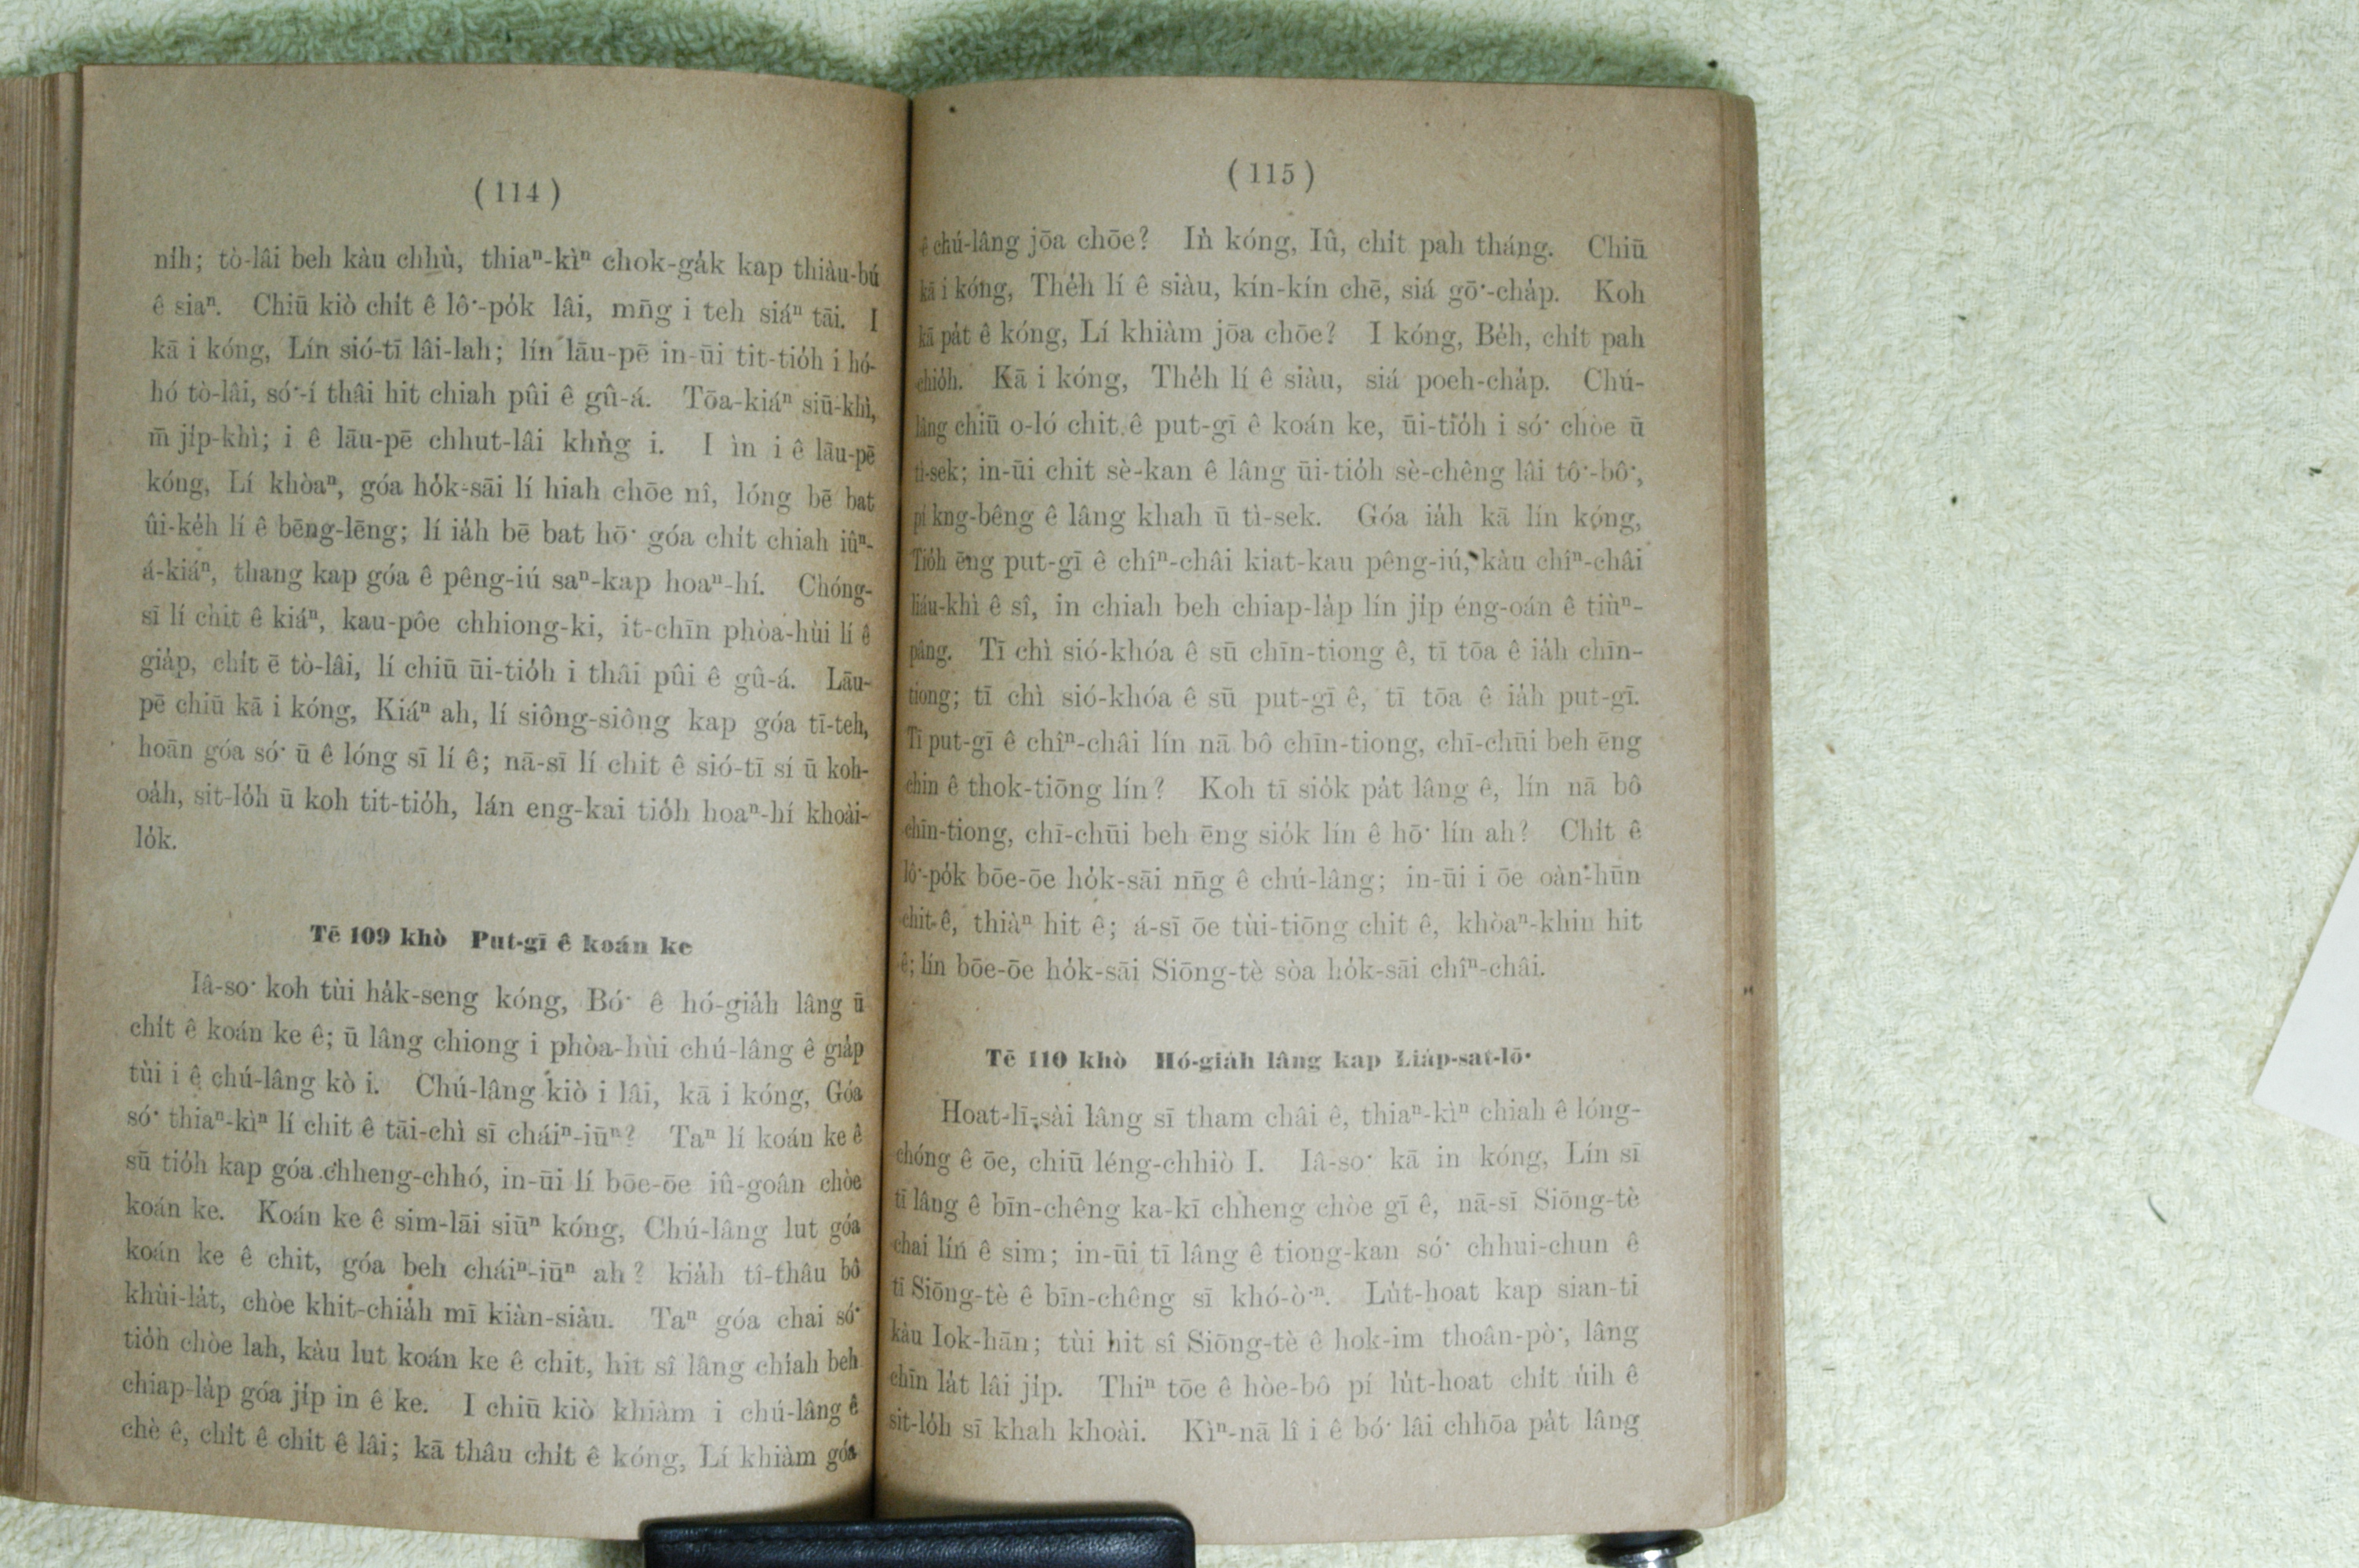 ( 114 )
nih; tò-lâi beh kàu chhù, thiaⁿ-kìⁿ chok-ga̍k kap thiàu-bú
ê siaⁿ. Chiū kiò chi̍t ê lô͘-po̍k lâi, mn̄g i teh siáⁿ tāi. I
kā i kóng, Lín sió-tī lâi-lah; lín lāu-pē in-ūi tit-tio̍h i hó-
hó tò-lâi, só͘-í thâi hit chiah pûi ê gû-á. Tōa-kiáⁿ siū-khì,
m̄ ji̍p-khì; i ê lāu-pē chhut-lâi khǹg i. I ìn i ê lāu-pē
kóng, Lí khòaⁿ, góa ho̍k-sāi lí hiah chōe nî, lóng bē bat
ûi-ke̍h lí ê bēng-lēng; lí ia̍h bē bat hō͘ góa chi̍t chiah iûⁿ-
á-kiáⁿ, thang kap góa ê pêng-iú saⁿ-kap hoaⁿ-hí. Chóng-
sī lí chit ê kiáⁿ, kau-pôe chhiong-ki, it-chīn phòa-hùi lí ê
gia̍p, chi̍t ē tò-lâi, lí chiū ūi-tio̍h i thâi pûi ê gû-á. Lāu-
pē chiū kā i kóng, Kiáⁿ ah, lí siông-siông kap góa tī-teh,
hoān góa só͘ ū ê lóng sī lí ê; nā-sī lí chit ê sió-tī sí ū koh-
oa̍h, sit-lo̍h ū koh tit-tio̍h, lán eng-kai tio̍h hoaⁿ-hí khoài-
lo̍k.
Tē 109 khò Put-gī ê koán ke
Iâ-so͘ koh tùi ha̍k-seng kóng, Bó͘ ê hó-gia̍h lâng ū
chi̍t ê koán ke ê; ū lâng chiong i phòa-hùi chú-lâng ê gia̍p
tùi i ê chú-lâng kò i. Chú-lâng kiò i lâi, kā i kóng, Góa
só͘ thiaⁿ-kìⁿ lí chit ê tāi-chì sī cháiⁿ-iūⁿ? Taⁿ lí koán ke ê
sū tio̍h kap góa chheng-chhó, in-ūi lí bōe-ōe iû-goân chòe
koán ke. Koán ke ê sim-lāi siūⁿ kóng, Chú-lâng lut góa
koán ke ê chit, góa beh cháiⁿ-iūⁿ ah? kia̍h tî-thâu bô
khùi-la̍t, chòe khit-chia̍h mī kiàn-siàu. Taⁿ góa chai só͘
tio̍h chòe lah, kàu lut koán ke ê chit, hit sî lâng chiah beh
chiap-la̍p góa ji̍p in ê ke. I chiū kiò khiàm i chú-lâng ê
chè ê, chi̍t ê chi̍t ê lâi; kā thâu chi̍t ê kóng, Lí khiàm góa
( 115 )
ê chú-lâng jōa chōe? Iǹ kóng, Iû, chi̍t pah tháng. Chiū
kā i kóng, The̍h lí ê siàu, kín-kín chē, siá gō͘-cha̍p. Koh
kā pa̍t ê kóng, Lí khiàm jōa chōe? I kóng, Be̍h, chi̍t pah
chio̍h. Kā i kóng, The̍h lí ê siàu, siá poeh-cha̍p. Chú-
lâng chiū o-ló chit ê put-gī ê koán ke, ūi-tio̍h i só͘ chòe ū
tì-sek; in-ūi chit sè-kan ê lâng ūi-tio̍h sè-chêng lâi tô͘-bô͘,
pí kng-bêng ê lâng khah ū tì-sek. Góa ia̍h kā lín kóng,
Tio̍h ēng put-gī ê chîⁿ-châi kiat-kau pêng-iú, kàu chîⁿ-châi
liáu-khì ê sî, in chiah beh chiap-la̍p lín ji̍p éng-oán ê tiùⁿ-
pâng. Tī chì sió-khóa ê sū chīn-tiong ê, tī tōa ê ia̍h chīn-
tiong; tī chì sió-khóa ê sū put-gī ê, tī tōa ê ia̍h put-gī.
Tī put-gī ê chîⁿ-châi lín nā bô chīn-tiong, chī-chūi beh ēng
chin ê thok-tiōng lín? Koh tī sio̍k pa̍t lâng ê, lín nā bô
chīn-tiong, chī-chūi beh ēng sio̍k lín ê hō͘ lín ah? Chi̍t ê
lô͘-po̍k bōe-ōe ho̍k-sāi nn̄g ê chú-lâng; in-ūi i ōe oàn-hūn
chit-ê, thiàⁿ hit ê; á-sī ōe tùi-tiōng chit ê, khòaⁿ-khin hit
ê; lín bōe-ōe ho̍k-sāi Siōng-tè sòa ho̍k-sāi chîⁿ-châi.
Tē 110 khò Hó-gia̍h lâng kap Lia̍p-sat-lō͘
Hoat-lī-sài lâng sī tham châi ê, thiaⁿ-kìⁿ chiah ê lóng-
chóng ê ōe, chiū léng-chhiò I. Iâ-so͘ kā in kóng, Lín sī
tī lâng ê bīn-chêng ka-kī chheng chòe gī ê, nā-sī Siōng-tè
chai lín ê sim; in-ūi tī lâng ê tiong-kan só͘ chhui-chun ê
tī Siōng-tè ê bīn-chêng sī khó-ò͘ⁿ. Lu̍t-hoat kap sian-ti
kàu Iok-hān; tùi hit sî Siōng-tè ê hok-im thoân-pò͘, lâng
chīn la̍t lâi ji̍p. Thiⁿ tōe ê hòe-bô pí lu̍t-hoat chi̍t u̍ih ê
sit-lo̍h sī khah khoài. Kìⁿ-nā lî i ê bó͘ lâi chhōa pa̍t lâng